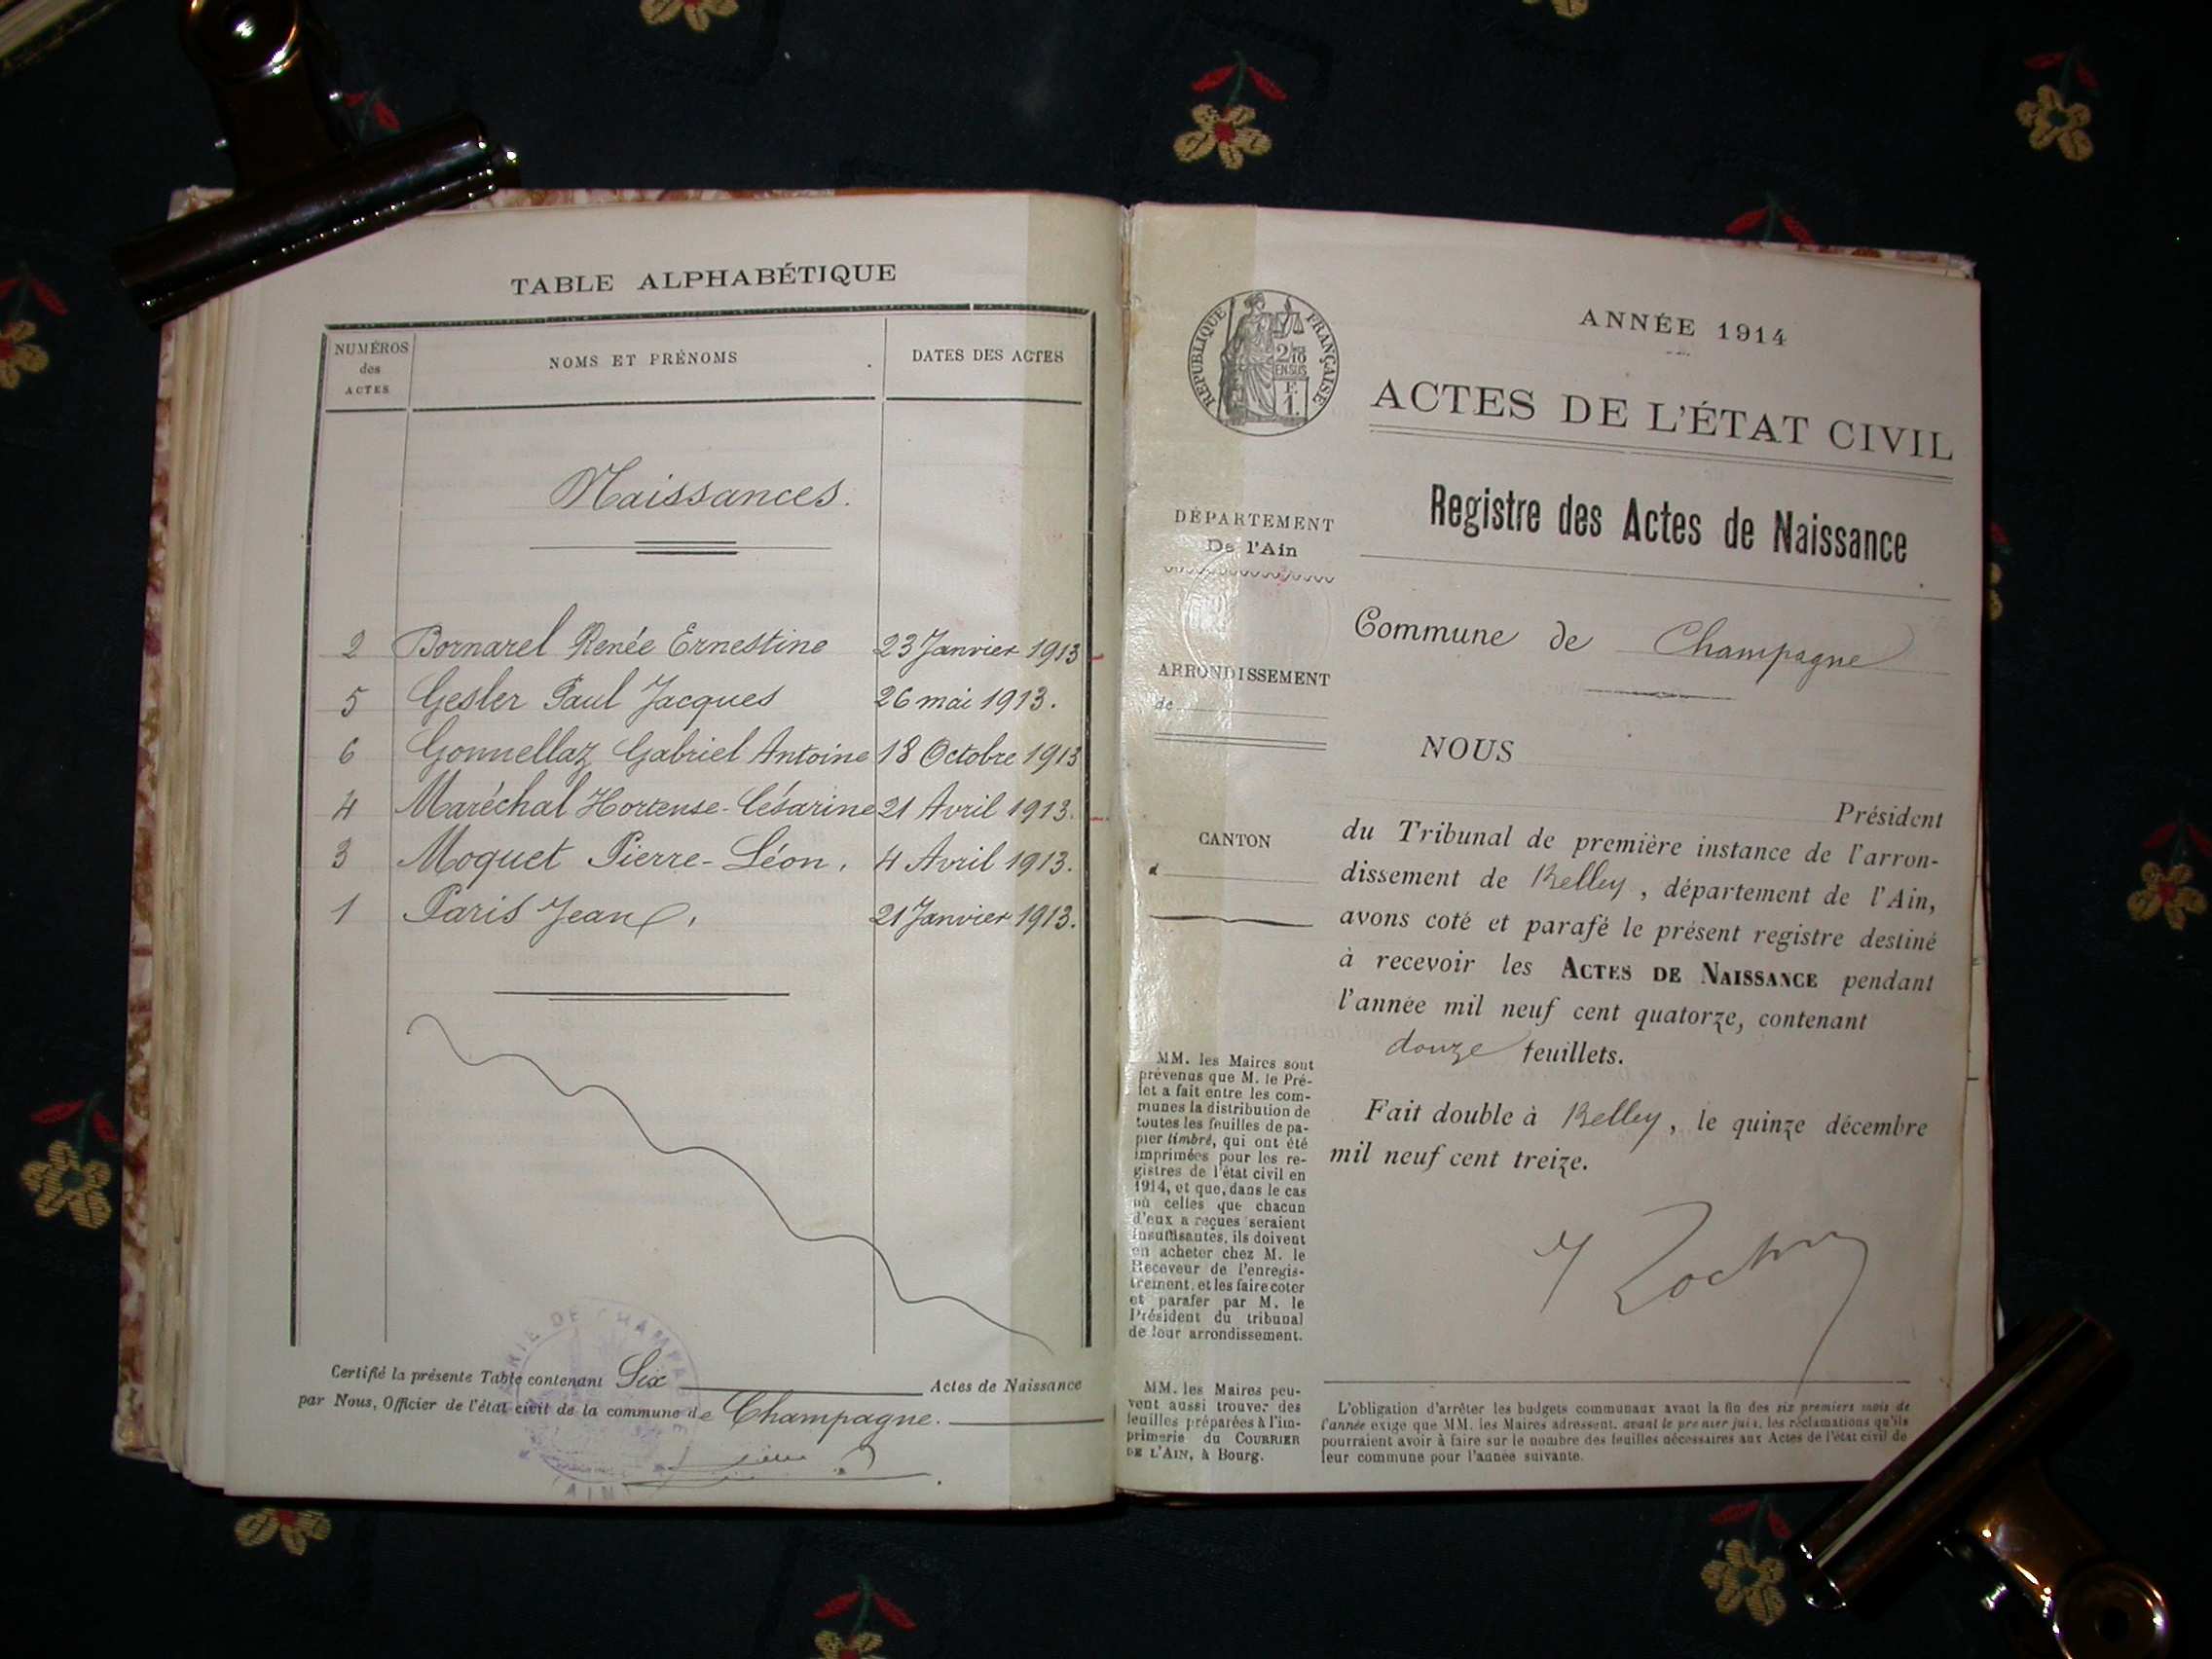 TABLE ALPHABÉTIQUE
NUMÉROS
des
ACTES
NOMS ET PRÉNOMS
DATES DES ACTES
Naissances.
2 Bornarel Renée Ernestine 23 Janvier 1913
5 Gesler Paul Jacques 26 mai 1913.
6 Gonnellaz Gabriel Antoine 18 Octobre 1913
4 Maréchal Hortense-Césarine 21 Avril 1913.
3 Moquet Pierre-Léon. 4 Avril 1913.
1 Paris Jean. 21 Janvier 1913.
Certifié la présente Table contenant Six Actes de Naissance
par Nous, Officier de l'état civil de la commune de Champagne.
MAIRIE DE CHAMPAGNE
(AIN)
RÉPUBLIQUE FRANÇAISE
2/10
EN SUS
F.
1.
ANNÉE 1914
ACTES DE L'ÉTAT CIVIL
Registre des Actes de Naissance
DÉPARTEMENT
De l'Ain
ARRONDISSEMENT
de
CANTON
d
MM. les Maires sont
prévenus que M. le Pré-
fet a fait entre les com-
munes la distribution de
toutes les feuilles de pa-
pier timbré, qui ont été
imprimées pour les re-
gistres de l'état civil en
1914, et que, dans le cas
où celles que chacun
d'eux a reçues seraient
insuffisantes, ils doivent
en acheter chez M. le
Receveur de l'enregis-
trement, et les faire coter
et parafer par M. le
Président du tribunal
de leur arrondissement.
MM. les Maires peu-
vent aussi trouver des
feuilles préparées à l'im-
primerie du COURRIER
DE L'AIN, à Bourg.
Commune de Champagne
NOUS
Président
du Tribunal de première instance de l'arron-
dissement de Belley, département de l'Ain,
avons coté et parafé le présent registre destiné
à recevoir les ACTES DE NAISSANCE pendant
l'année mil neuf cent quatorze, contenant
douze feuillets.
Fait double à Belley, le quinze décembre
mil neuf cent treize.
L'obligation d'arrêter les budgets communaux avant la fin des six premiers mois de
l'année exige que MM. les Maires adressent, avant le premier juin, les réclamations qu'ils
pourraient avoir à faire sur le nombre des feuilles nécessaires aux Actes de l'état civil de
leur commune pour l'année suivante.